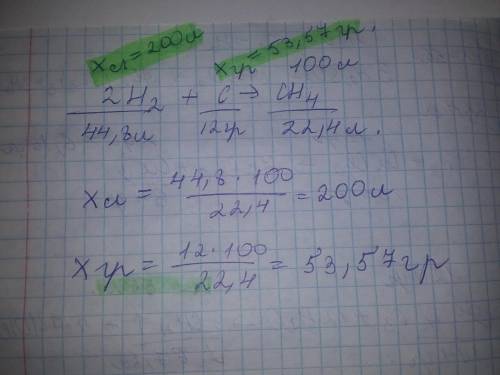 xл = 200л xгр = 53,57гр.
100л
2H₂ + C → CH₄
44,8л 12гр 22,4л.
xл = 44,8 · 100 / 22,4 = 200л
xгр = 12 · 100 / 22,4 = 53,57гр